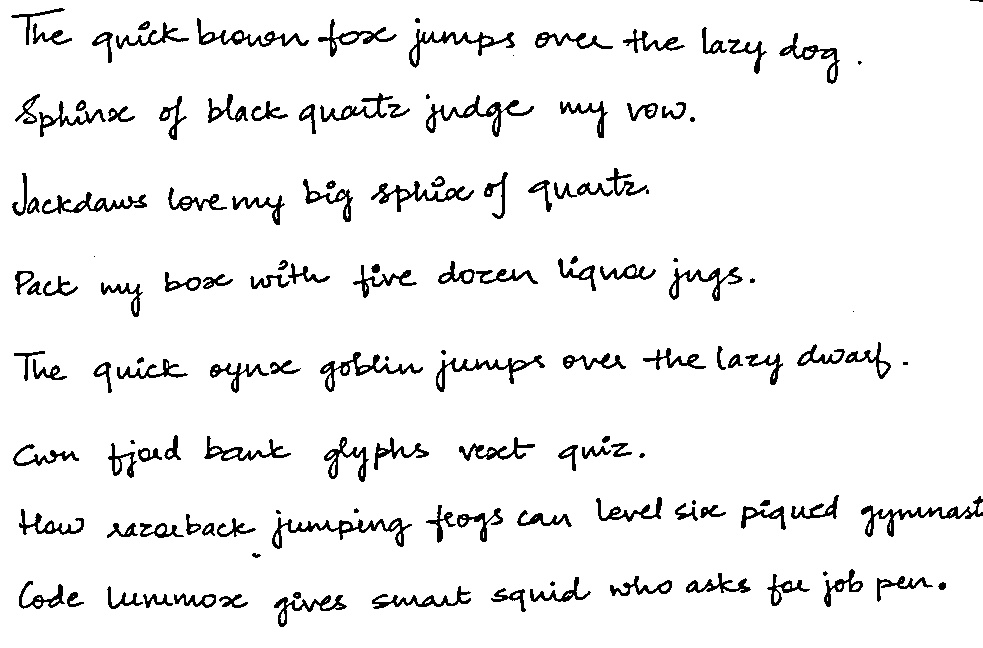 The quick brown fox jumps over the lazy dog.
Sphinx of black quartz judge my vow.
Jackdaws love my big sphix of quartz.
Pack my box with five dozen liquor jugs.
The quick oynx goblin jumps over the lazy dwarf.
Cwn fjord bank glyphs vext quiz.
How razorback jumping frogs can level six piqued gymnast
Code lummox gives smart squid who asks for job pen.